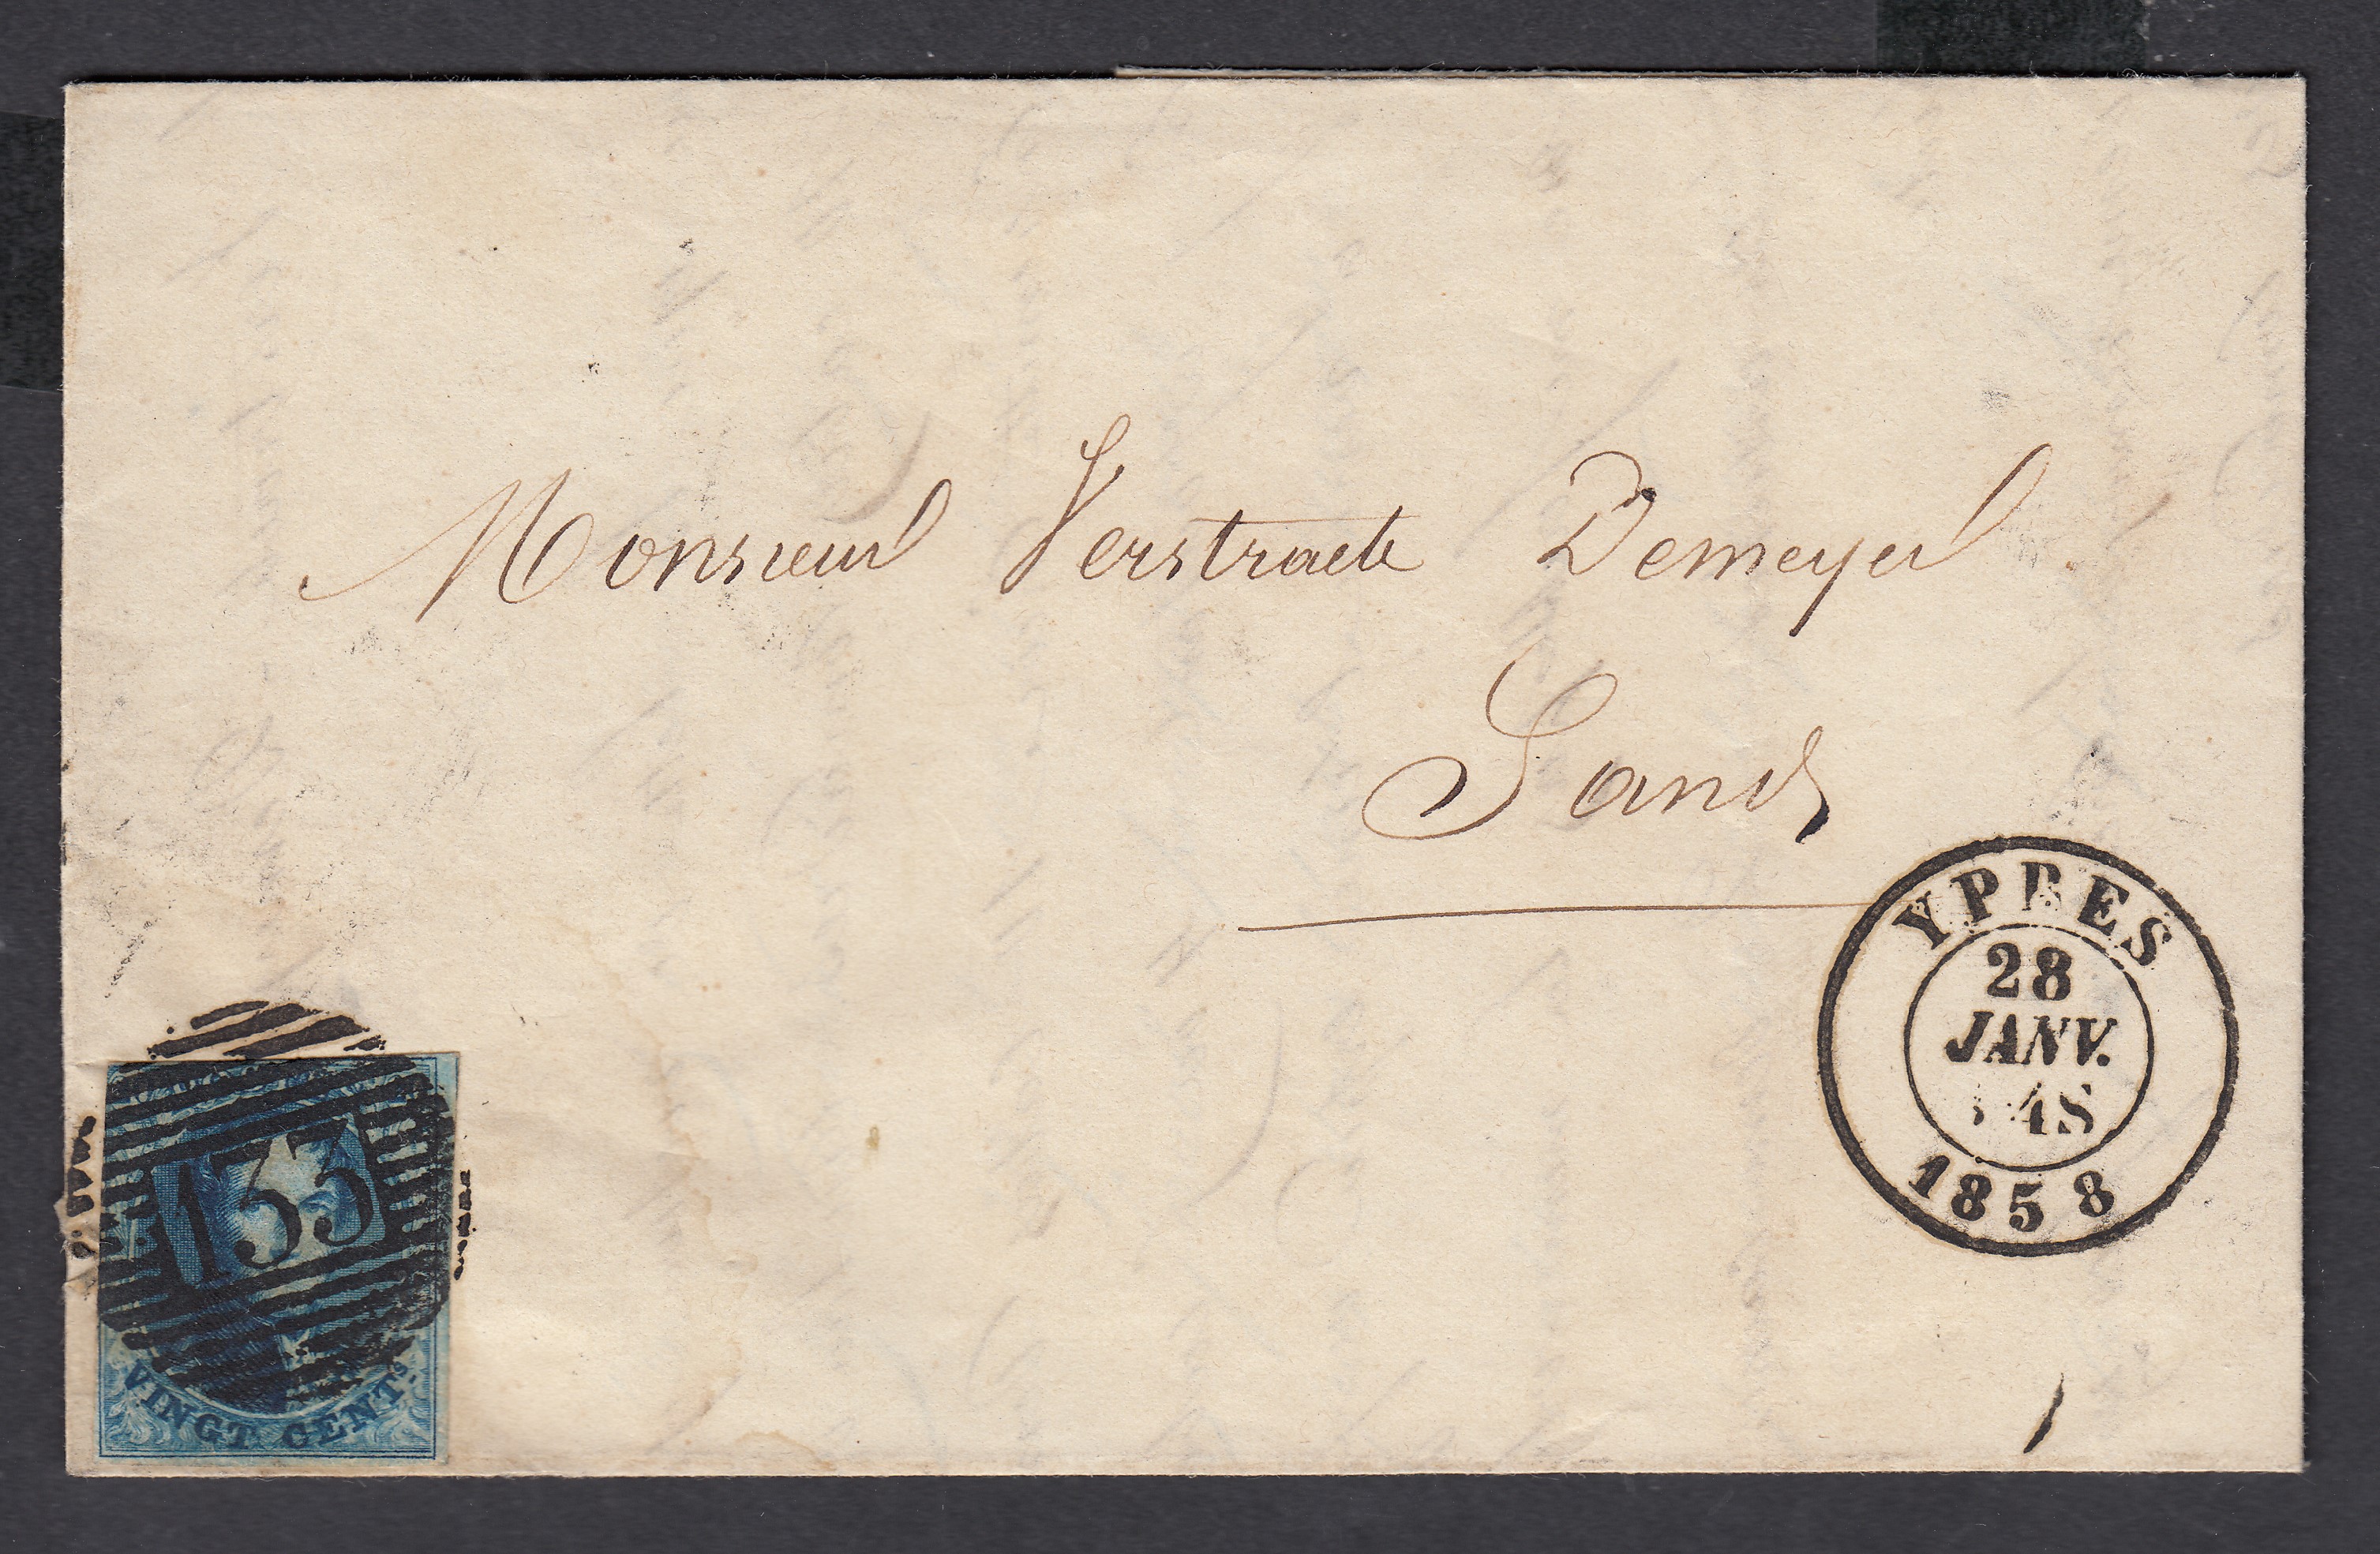 Monsieur Verstraete Demeyer
Gand
YPRES
28
JANV.
4S
1858
133
VINGT CENTS.